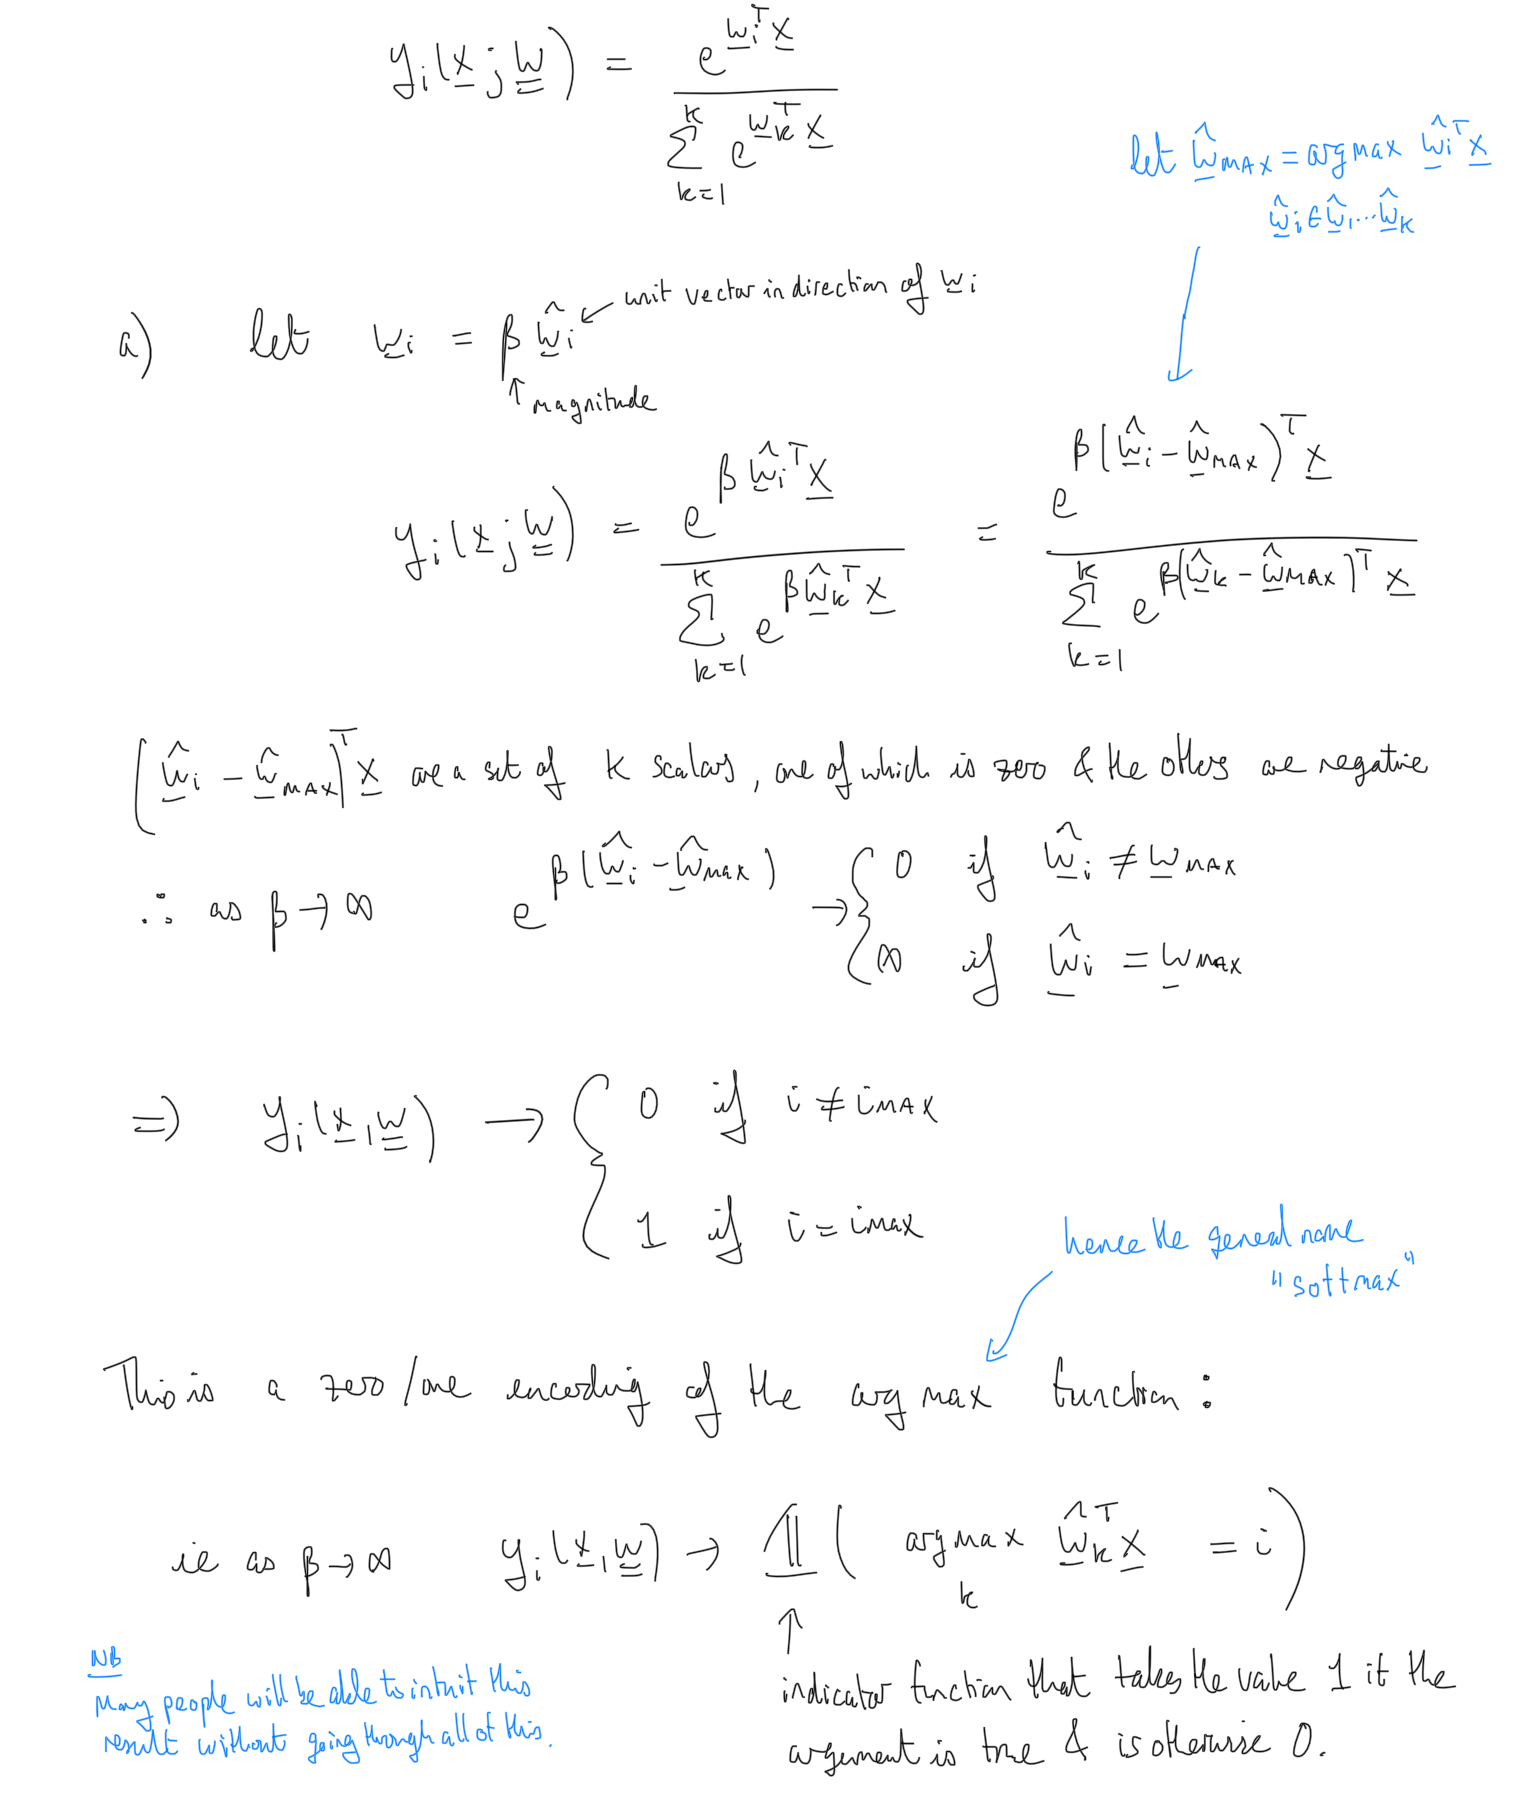 y_i(x; w) = e^{w_i^T x} / Σ_{k=1}^{K} e^{w_k^T x}
let ŵ_MAX = argmax ŵ_i^T x
ŵ_i ∈ ŵ_1...ŵ_K
a) let w_i = β ŵ_i ← unit vector in direction of w_i
↑ magnitude
y_i(x; w) = e^{β ŵ_i^T x} / Σ_{k=1}^{K} e^{β ŵ_k^T x} = e^{β(ŵ_i - ŵ_MAX)^T x} / Σ_{k=1}^{K} e^{β(ŵ_k - ŵ_MAX)^T x}
(ŵ_i - ŵ_MAX)^T x are a set of K scalars, one of which is zero & the others are negative
∴ as β → ∞ e^{β(ŵ_i - ŵ_MAX)} → { 0 if ŵ_i ≠ w_MAX
∞ if ŵ_i = w_MAX
⇒ y_i(x, w) → { 0 if i ≠ i_MAX
1 if i = i_MAX
hence the general name
"softmax"
This is a zero/one encoding of the arg max function:
ie as β → ∞ y_i(x, w) → 𝟙( argmax_k ŵ_k^T x = i )
↑
indicator function that takes the value 1 if the
argument is true & is otherwise 0.
NB
Many people will be able to intuit this
result without going through all of this.